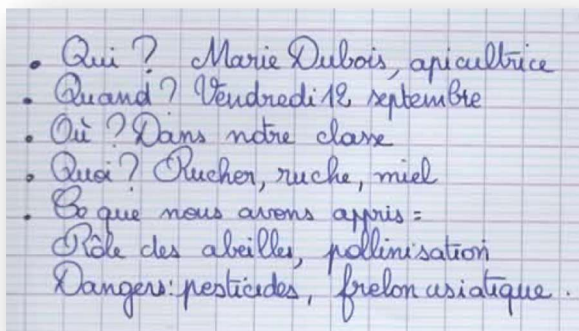 • Qui ? Marie Dubois, apicultrice
• Quand ? Vendredi 12 septembre
• Où ? Dans notre classe
• Quoi ? Rucher, ruche, miel
• Ce que nous avons appris :
Rôle des abeilles, pollinisation
Dangers : pesticides, frelon asiatique.